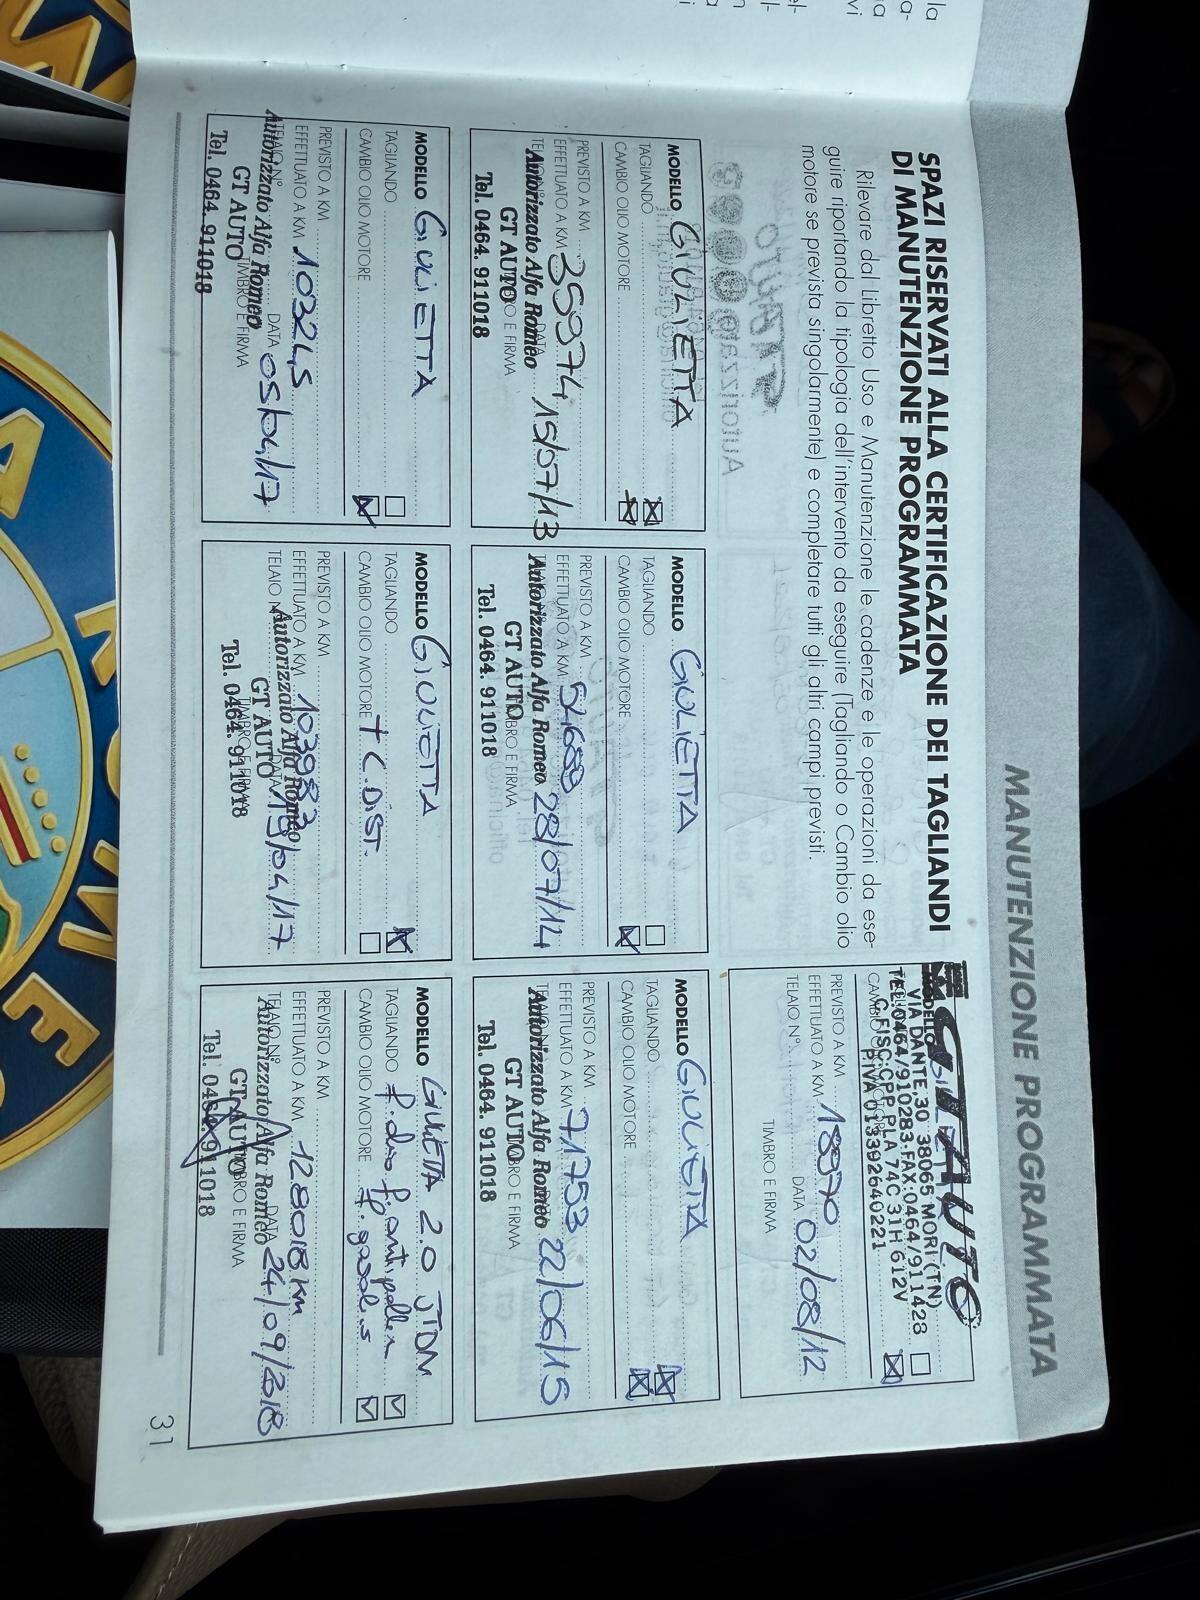 MANUTENZIONE PROGRAMMATA
SPAZI RISERVATI ALLA CERTIFICAZIONE DEI TAGLIANDI
DI MANUTENZIONE PROGRAMMATA
Rilevare dal Libretto Uso e Manutenzione le cadenze e le operazioni da ese-
guire riportando la tipologia dell'intervento da eseguire (Tagliando o Cambio olio
motore se prevista singolarmente) e completare tutti gli altri campi previsti.
GT AUTO
VIA DANTE,30 38065 MORI (TN)
TEL.0464/910283-FAX:0464/911428
C.FISC:CPP PLA 74C 31H 612V
P.IVA 013392640221
PREVISTO A KM
EFFETTUATO A KM 18970
TELAIO N° DATA 02/08/12
TIMBRO E FIRMA
MODELLO GIULIETTA
TAGLIANDO
CAMBIO OLIO MOTORE
PREVISTO A KM
EFFETTUATO A KM 35974
DATA 15/07/13
Autorizzato Alfa Romeo
GT AUTO
TIMBRO E FIRMA
Tel. 0464. 911018
MODELLO GIULIETTA
TAGLIANDO
CAMBIO OLIO MOTORE
PREVISTO A KM
EFFETTUATO A KM 52688
Autorizzato Alfa Romeo 28/07/14
GT AUTO
TIMBRO E FIRMA
Tel. 0464. 911018
MODELLO GIULIETTA
TAGLIANDO
CAMBIO OLIO MOTORE
PREVISTO A KM
EFFETTUATO A KM 71753
Autorizzato Alfa Romeo 22/06/15
GT AUTO
TIMBRO E FIRMA
Tel. 0464. 911018
MODELLO GIULIETTA
TAGLIANDO
CAMBIO OLIO MOTORE
PREVISTO A KM
EFFETTUATO A KM 103245
TELAIO N° DATA 05/04/17
Autorizzato Alfa Romeo
GT AUTO
TIMBRO E FIRMA
Tel. 0464. 911018
MODELLO GIULIETTA
TAGLIANDO
CAMBIO OLIO MOTORE + C.DIST.
PREVISTO A KM
EFFETTUATO A KM 103983
TELAIO N° DATA 19/04/17
Autorizzato Alfa Romeo
GT AUTO
TIMBRO E FIRMA
Tel. 0464. 911018
MODELLO GIULIETTA 2.0 JTDM
TAGLIANDO f. olio f. antipollen
CAMBIO OLIO MOTORE f. gasolio
PREVISTO A KM
EFFETTUATO A KM 128018 km
TELAIO N° DATA 24/09/2018
Autorizzato Alfa Romeo
GT AUTO
TIMBRO E FIRMA
Tel. 0464. 911018
31